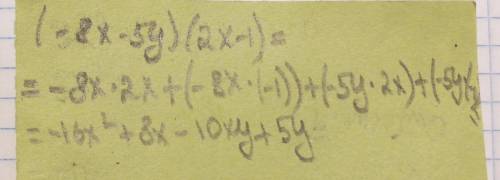 (-8x-5y)(2x-1)=
=-8x·2x+(-8x·(-1))+(-5y·2x)+(-5y(
=-16x²+8x-10xy+5y